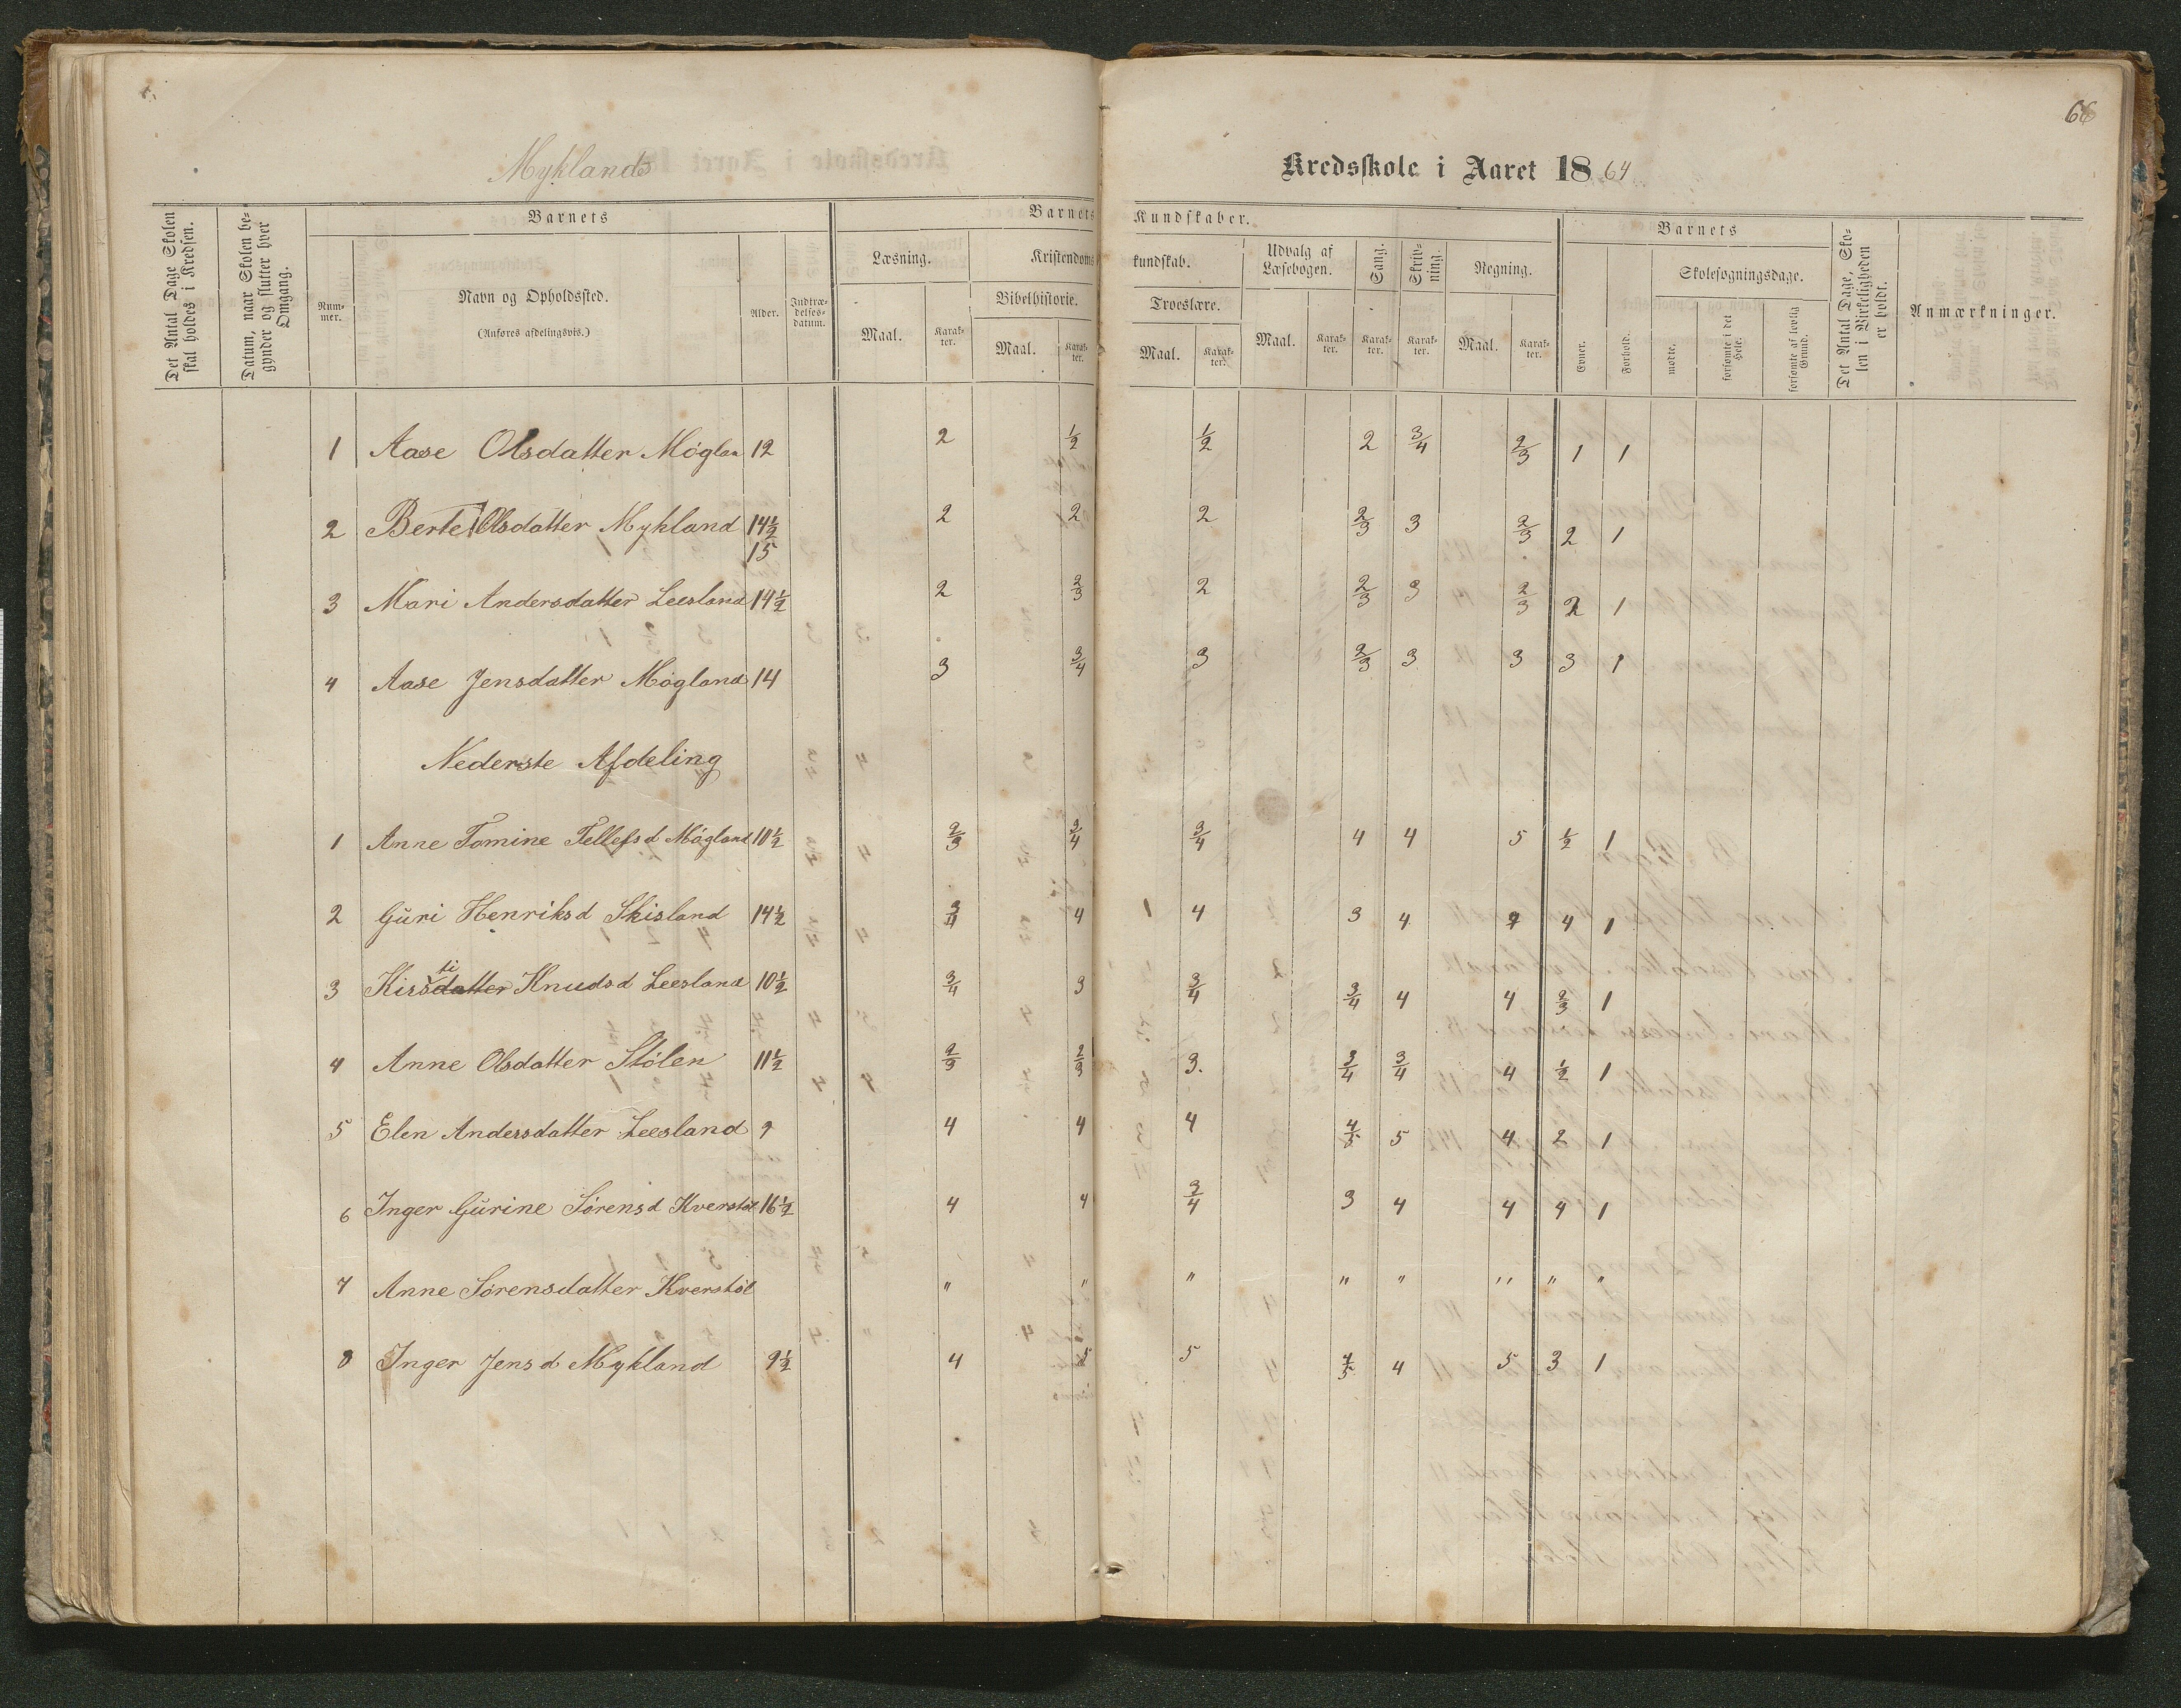 66
Myklands Kredsskole i Aaret 1864
Det Antal Dage Skolen skal holdes i Kredsen.
Datum, naar Skolen begynder og slutter hver Omgang.
Barnets
Nummer.
Navn og Opholdssted.
(Anføres afdelingsvis.)
Alder.
Indtrædelsesdatum.
Barnets Kundskaber.
Læsning.
Maal. Karakter.
Kristendomskundskab.
Bibelhistorie.
Maal. Karakter.
Troeslære.
Maal. Karakter.
Udvalg af Læsebogen.
Maal. Karakter.
Sang.
Karakter.
Skrivning.
Karakter.
Regning.
Maal. Karakter.
Barnets
Evner.
Forhold.
Skolesøgningsdage.
mødte.
forsømte i det Hele.
forsømte af lovlig Grund.
Det Antal Dage, Skolen i Virkeligheden er holdt.
Anmærkninger.
1 Aase Olsdatter Møglan 12 2 1/2 1/2 2 3/4 2/3 1 1
2 Berte Olsdatter Mykland 14 1/2 2 2 2 2/3 3 2/3 2 1
15
3 Mari Andersdatter Leesland 14 1/2 2 2/3 2 2/3 3 2/3 2 1
4 Aase Jensdatter Møgland 14 3 3/4 3 2/3 3 3 3 1
Nederste Afdeling
1 Anne Tomine Tellefsd Møgland 10 1/2 2/3 3/4 3/4 4 4 5 1/2 1
2 Guri Henriksd Skisland 14 1/2 3/4 4 1 4 3 4 4 1
3 Kirsdatter ti Knudsd Leesland 10 1/2 3/4 3 3/4 3/4 4 4 2/3 1
4 Anne Olsdatter Stølen 11 1/2 2/3 2/3 3. 3/4 3/4 4 1/2 1
5 Elen Andersdatter Leesland 9 4 4 4 4/5 5 4 2 1
6 Inger Gurine Sørensd Kverstøl 16 1/2 4 4 3/4 3 4 4 4 1
7 Anne Sørensdatter Kverstøl " " " " " " " "
8 Inger Jensd Mykland 9 1/2 4 5 5 4/5 4 5 3 1